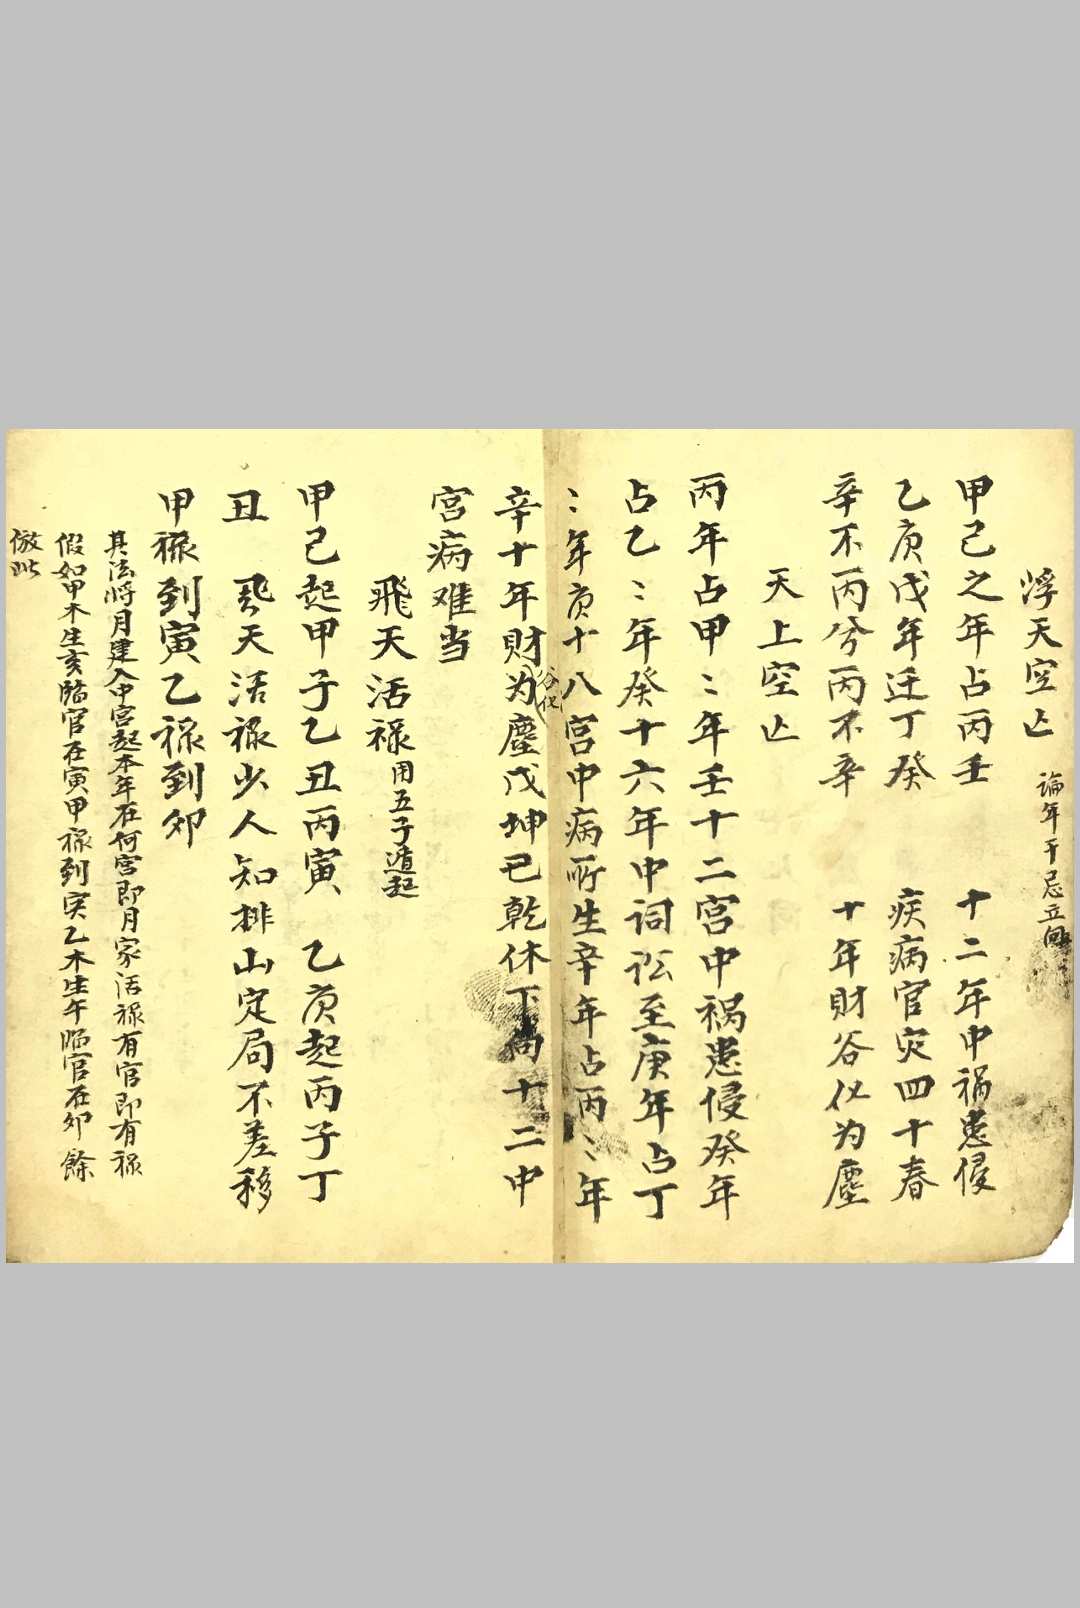 浮天空亡 論年干忌立向
甲己之年占丙壬 十二年中禍患侵
乙庚戊年迁丁癸 疾病官灾四十春
辛不丙兮丙不辛 十年財谷化为塵
天上空亡
丙年占甲〻年壬十二宮中禍患侵癸年
占乙〻年癸十六年中词讼至庚年占丁
〻年庚十八宮中病所生辛年占丙〻年
辛十年財谷化为塵戊坤己乾休下向十二中
宮病难当
飛天活禄 用五子遁起
甲己起甲子乙丑丙寅 乙庚起丙子丁
丑 飛天活禄少人知排山定局不差移
甲禄到寅乙禄到卯
其法將月建入中宮起本年在何宮即月家活禄有官即有禄
假如甲木生亥臨官在寅甲禄到寅乙木生午臨官在卯餘
倣此